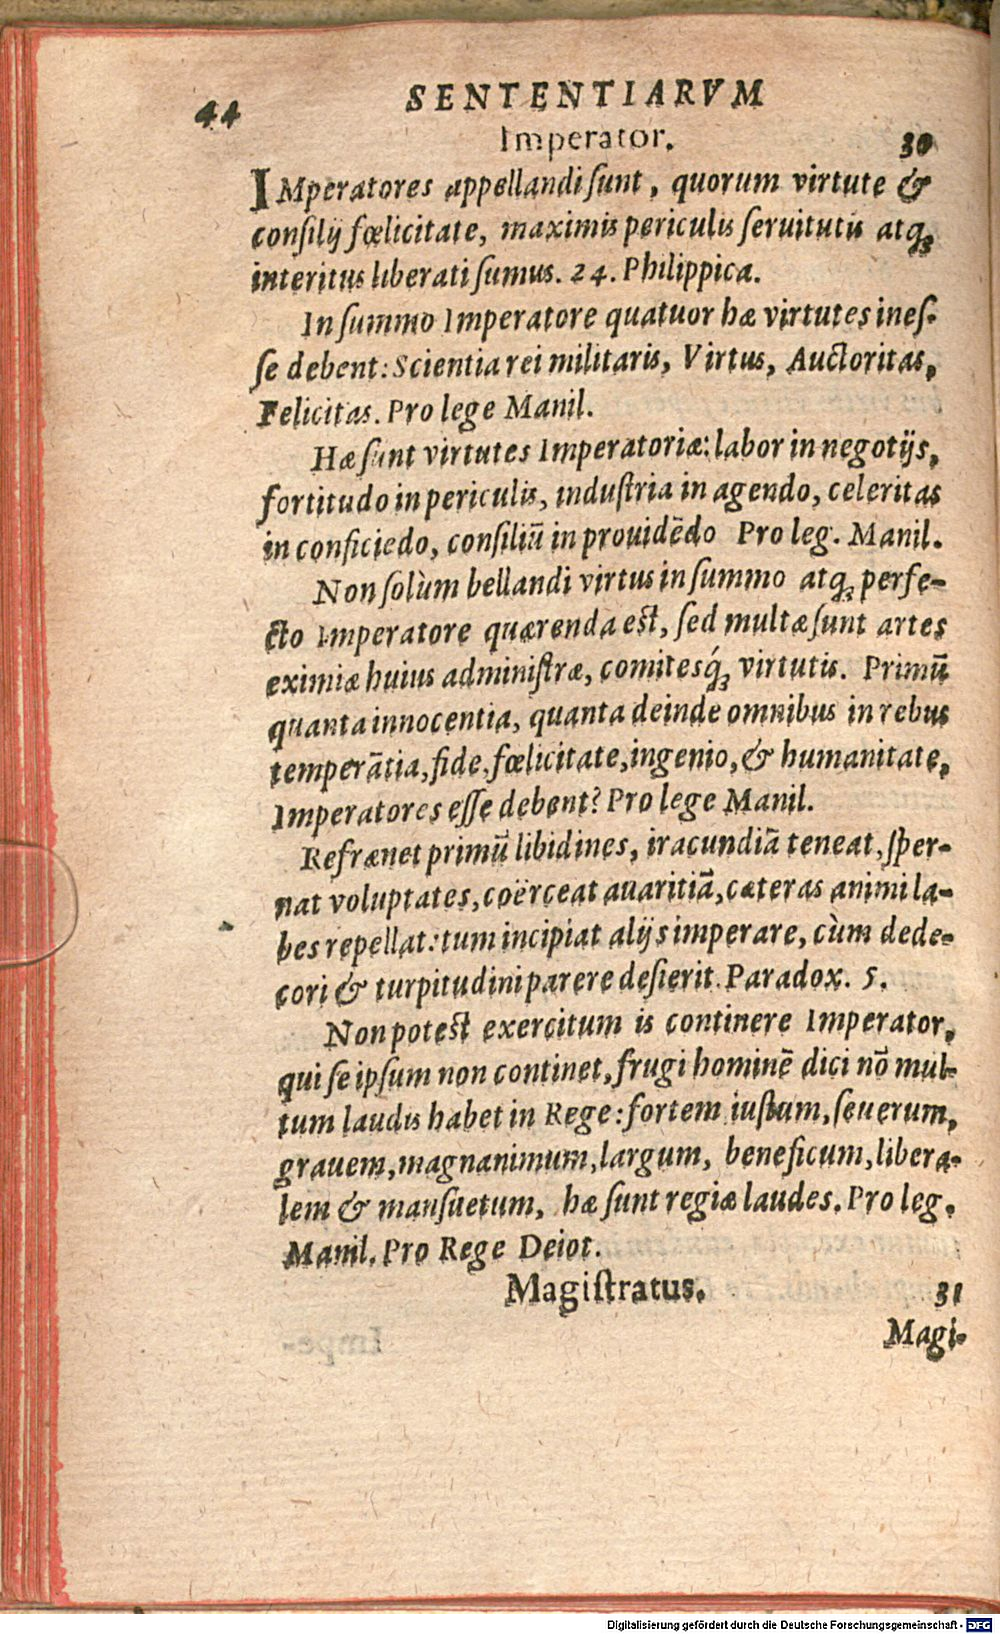 44 SENTENTIARVM
Imperator. 30
IMperatores appellandi ſunt, quorum virtute &
conſilij fœlicitate, maximis periculis ſeruitutis atq₃
interitus liberati ſumus. 24. Philippica.
In ſummo Imperatore quatuor hæ virtutes ineſ-
ſe debent: Scientia rei militaris, Virtus, Auctoritas,
Felicitas. Pro lege Manil.
Hæ ſunt virtutes Imperatoriæ: labor in negotijs,
fortitudo in periculis, induſtria in agendo, celeritas
in conficiedo, conſiliū in prouidēdo Pro leg. Manil.
Non ſolùm bellandi virtus in ſummo atq₃ perfe-
cto Imperatore quærenda eſt, ſed multæ ſunt artes
eximiæ huius adminiſtræ, comitesq́₃ virtutis. Primū
quanta innocentia, quanta deinde omnibus in rebus
temperātia, fide, fœlicitate, ingenio, & humanitate,
Imperatores eſſe debent? Pro lege Manil.
Refrænet primū libidines, iracundiā teneat, ſper-
nat voluptates, coërceat auaritiā, cæteras animi la-
bes repellat: tum incipiat alijs imperare, cùm dede-
cori & turpitudini parere deſierit. Paradox. 5.
Non poteſt exercitum is continere Imperator,
qui ſe ipſum non continet, frugi hominē dici nō mul-
tum laudis habet in Rege: fortem iuſtum, ſeuerum,
grauem, magnanimum, largum, beneficum, libera-
lem & manſuetum, hæ ſunt regiæ laudes. Pro leg.
Manil. Pro Rege Deiot.
Magiſtratus. 31
Magi-
Digitalisierung gefördert durch die Deutsche Forschungsgemeinschaft - DFG